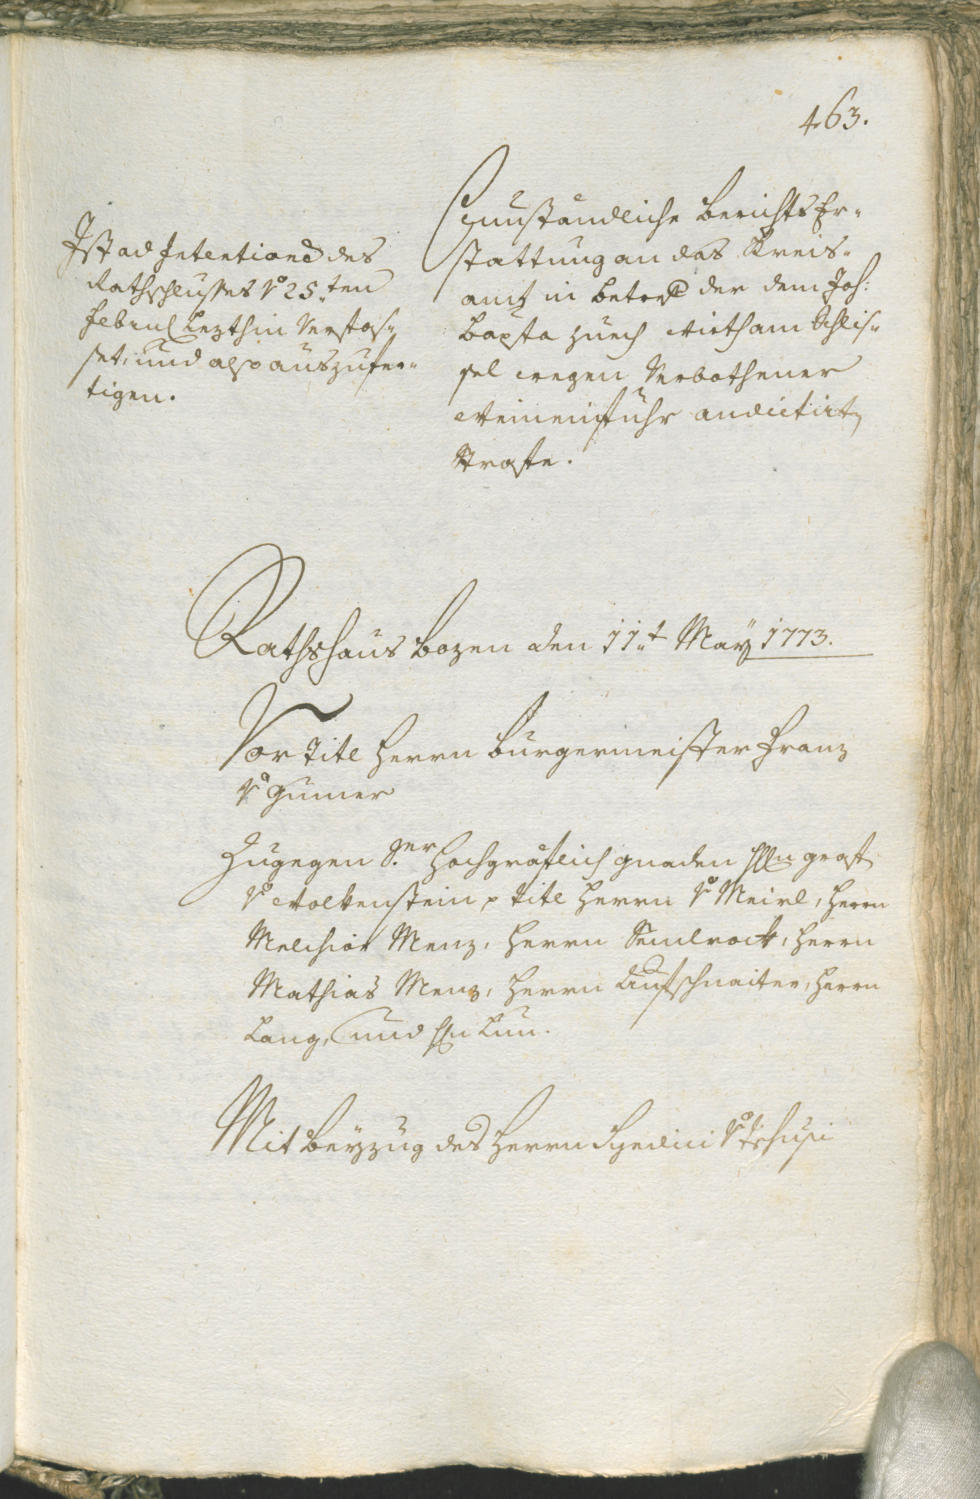 463.
Ist ad Intentione des
Rathschlusses v. 25.ten
Februar lezthin verfas-
set, und also auszufer-
tigen.
Gutständliche Berichts Er-
stattung an das Kreis-
amt in betref der dem Joh:
Bapta Wirth am Schlis-
sel wegen Verbothener
Weineinfuhr andictirt
Strafe.
Rathshaus Bozen den 11.t Maÿ 1773.
Vor Titl Herrn Burgermeister Franz
v. Gumer
Zugegen Sr. Hochgräflich gnaden Hrn graf
v. Wolkenstein, Titl Herrn v. Meirl, Herrn
Melchior Menz, Herrn Semlrock, Herrn
Mathias Menz, Herrn Aufschnaiter, Herrn
Lang, und Hrn Lun.
Mit Beÿzug des Herrn Syndici v.